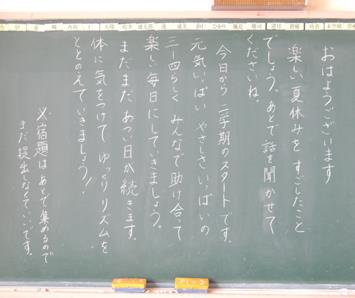 おはようございます
楽しい夏休みをすごしたこと
でしょう。あとで話を聞かせて
くださいね。
今日から二学期のスタートです。
元気いっぱいやさしさいっぱいの
三一四らしくみんなで助け合って
楽しい毎日にしていきましょう。
まだまだあつい日が続きます。
体に気をつけてゆっくりリズムを
ととのえていきましょう!
※宿題はあとで集めるので
まだ提出しなくていいです。